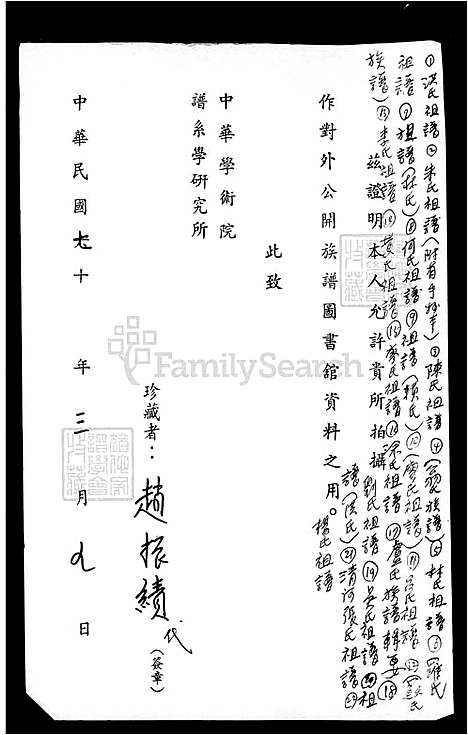 ①洪氏祖譜②朱氏祖譜(附有手抄本)③陳氏祖譜④(翁氏族譜)⑤林氏祖譜⑥羅氏
祖譜⑦祖譜(林氏)⑧何氏祖譜⑨祖譜(賴氏)⑩(廖氏祖譜)⑪呂氏祖譜⑫
族譜)⑬李氏祖譜⑭黃氏祖譜⑮廖氏祖譜⑯宋氏祖譜⑰盧氏族譜輯要⑱
劉氏祖譜⑲吳氏祖譜⑳祖
譜(洪氏)㉑清河張氏祖譜
楊氏祖譜
茲證明本人允許貴所拍攝
作對外公開族譜圖書館資料之用。
此致
中華學術院
譜系學研究所
珍藏者：趙振績代(簽章)
中華民國七十年三月九日
FamilySearch